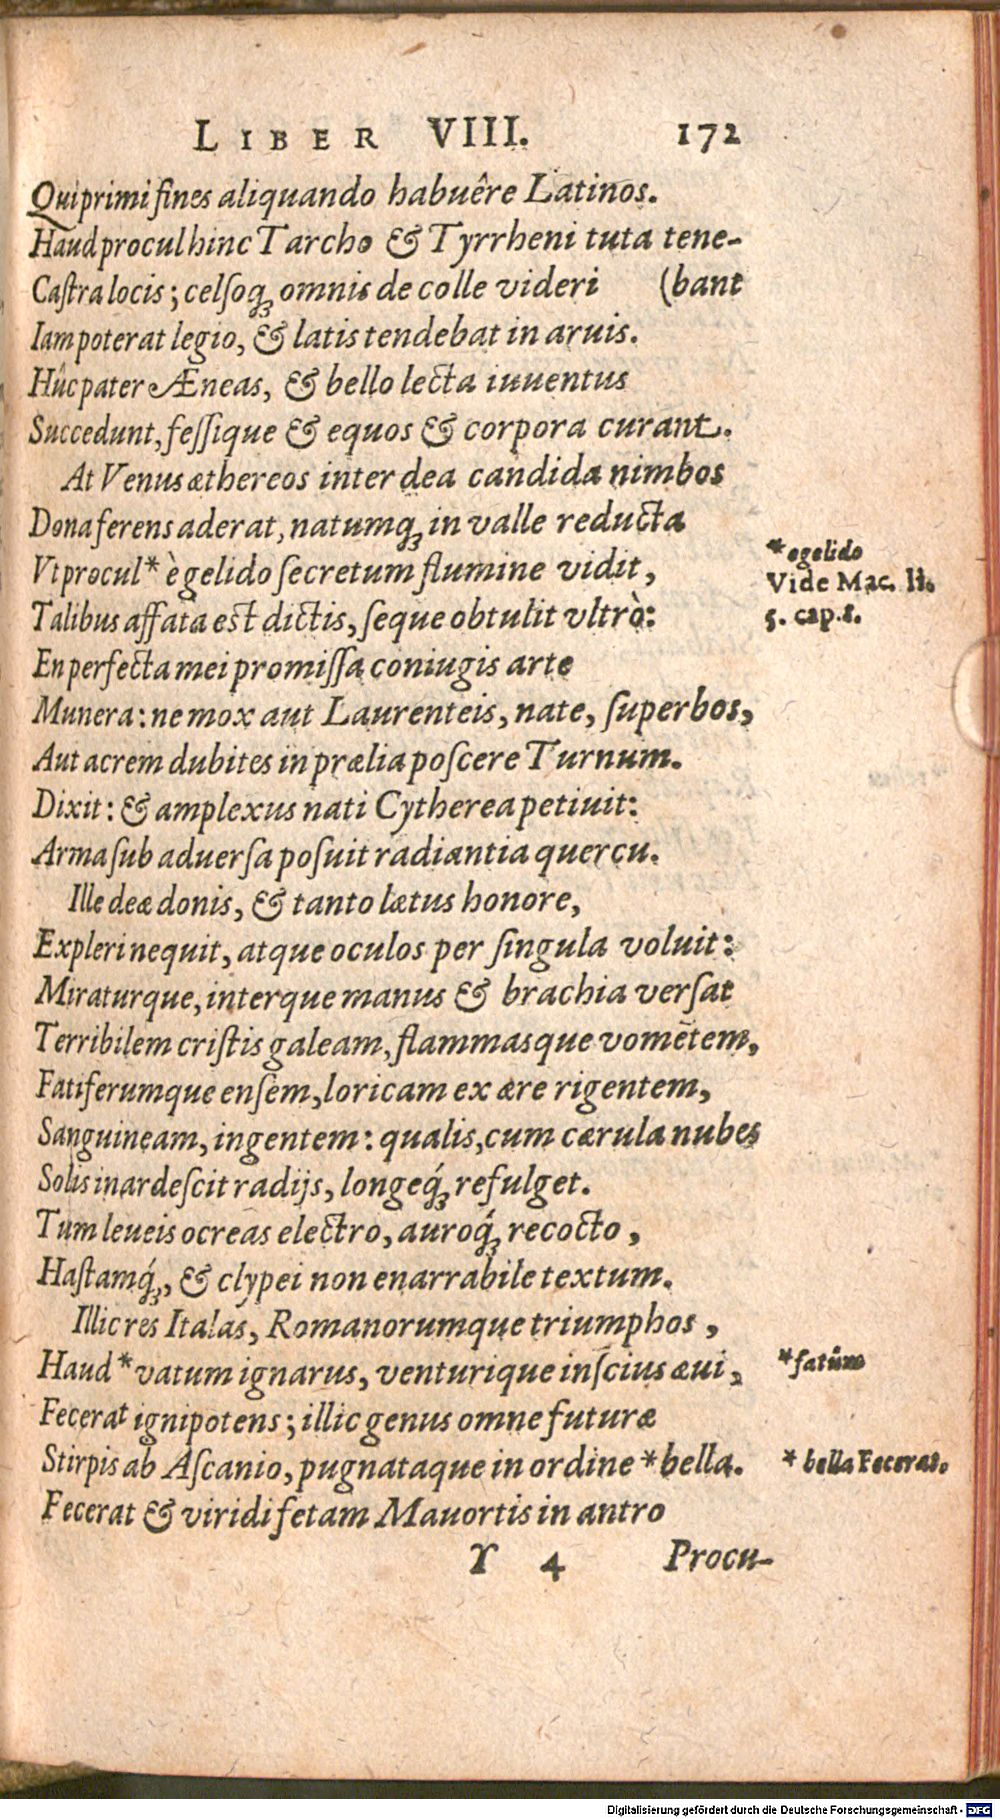 LIBER VIII. 172
Qui primi fines aliquando habuêre Latinos.
Haud procul hinc Tarcho & Tyrrheni tuta tene-
Caſtra locis; celſoq́ꝫ omnis de colle videri (bant
Iam poterat legio, & latis tendebat in aruis.
Hûc pater Æneas, & bello lecta iuuentus
Succedunt, feſſique & equos & corpora curant.
At Venus æthereos inter dea candida nimbos
Dona ferens aderat, natumqꝫ in valle reducta
Vt procul* è gelido ſecretum flumine vidit,
*egelido
Vide Mac. li.
5. cap. 8.
Talibus affata est dictis, ſeque obtulit vltrò:
En perfecta mei promiſſa coniugis arte
Munera: ne mox aut Laurenteis, nate, ſuperbos,
Aut acrem dubites in prælia poſcere Turnum.
Dixit: & amplexus nati Cytherea petiuit:
Arma ſub aduerſa poſuit radiantia quercu.
Ille deæ donis, & tanto lætus honore,
Expleri nequit, atque oculos per ſingula voluit:
Miraturque, interque manus & brachia verſat
Terribilem criſtis galeam, flammasque vomētem,
Fatiferumque enſem, loricam ex ære rigentem,
Sanguineam, ingentem: qualis, cum cærula nubes
Solis inardeſcit radijs, longeq́ꝫ refulget.
Tum leueis ocreas electro, auroq́ꝫ recocto,
Haſtamq́ꝫ, & clypei non enarrabile textum.
Illic res Italas, Romanorumque triumphos,
Haud *vatum ignarus, venturique inſcius æui,
*fatûm
Fecerat ignipotens; illic genus omne futuræ
Stirpis ab Aſcanio, pugnataque in ordine *bella.
* bella Fecerat.
Fecerat & viridi fetam Mauortis in antro
Y 4 Procu-
Digitalisierung gefördert durch die Deutsche Forschungsgemeinschaft - DFG